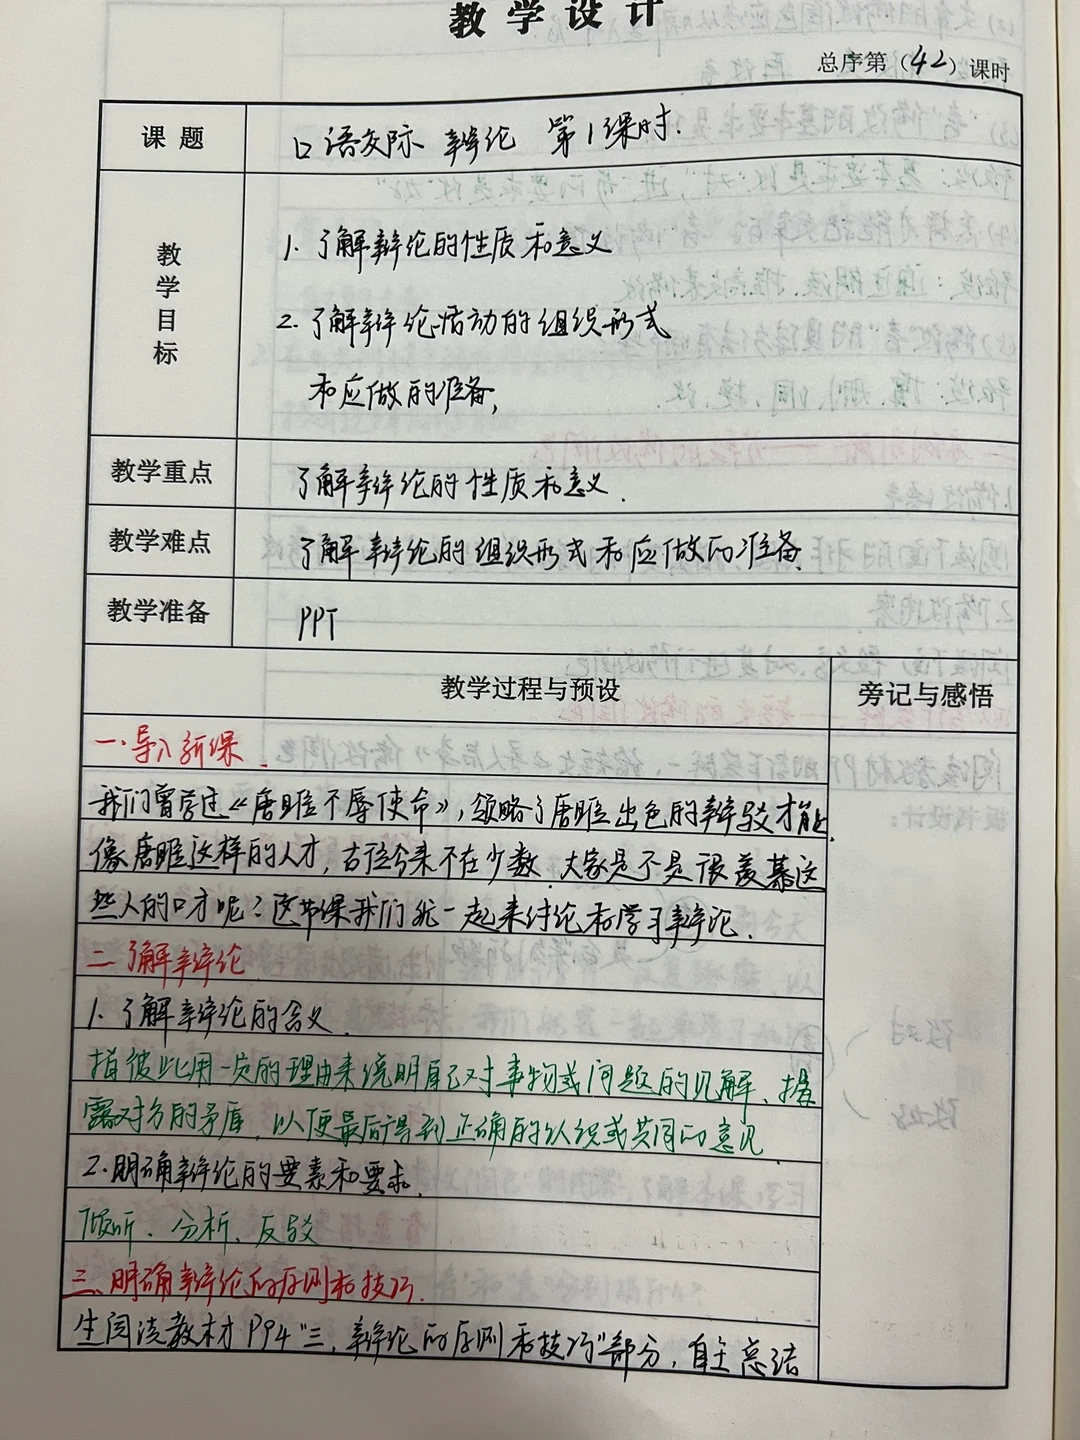 教学设计
总序第（42）课时
课题
口语交际 辩论 第1课时.
教学目标
1. 了解辩论的性质和意义
2. 了解辩论活动的组织形式
和应做的准备,
教学重点
了解辩论的性质和意义.
教学难点
了解辩论的组织形式和应做的准备.
教学准备
PPT
教学过程与预设
旁记与感悟
一.导入新课.
我们曾学过《唐雎不辱使命》,领略了唐雎出色的辩驳才能.
像唐雎这样的人才,古往今来不在少数.大家是不是很羡慕这
些人的口才呢?这节课我们就一起来讨论和学习辩论.
二.了解辩论
1.了解辩论的含义.
指彼此用一定的理由来说明自己对事物或问题的见解、揭
露对方的矛盾,以便最后得到正确的认识或共同的意见.
2.明确辩论的要素和要求.
倾听、分析、反驳
三.明确辩论的原则和技巧.
生阅读教材P94"三、辩论的原则和技巧"部分,自主总结